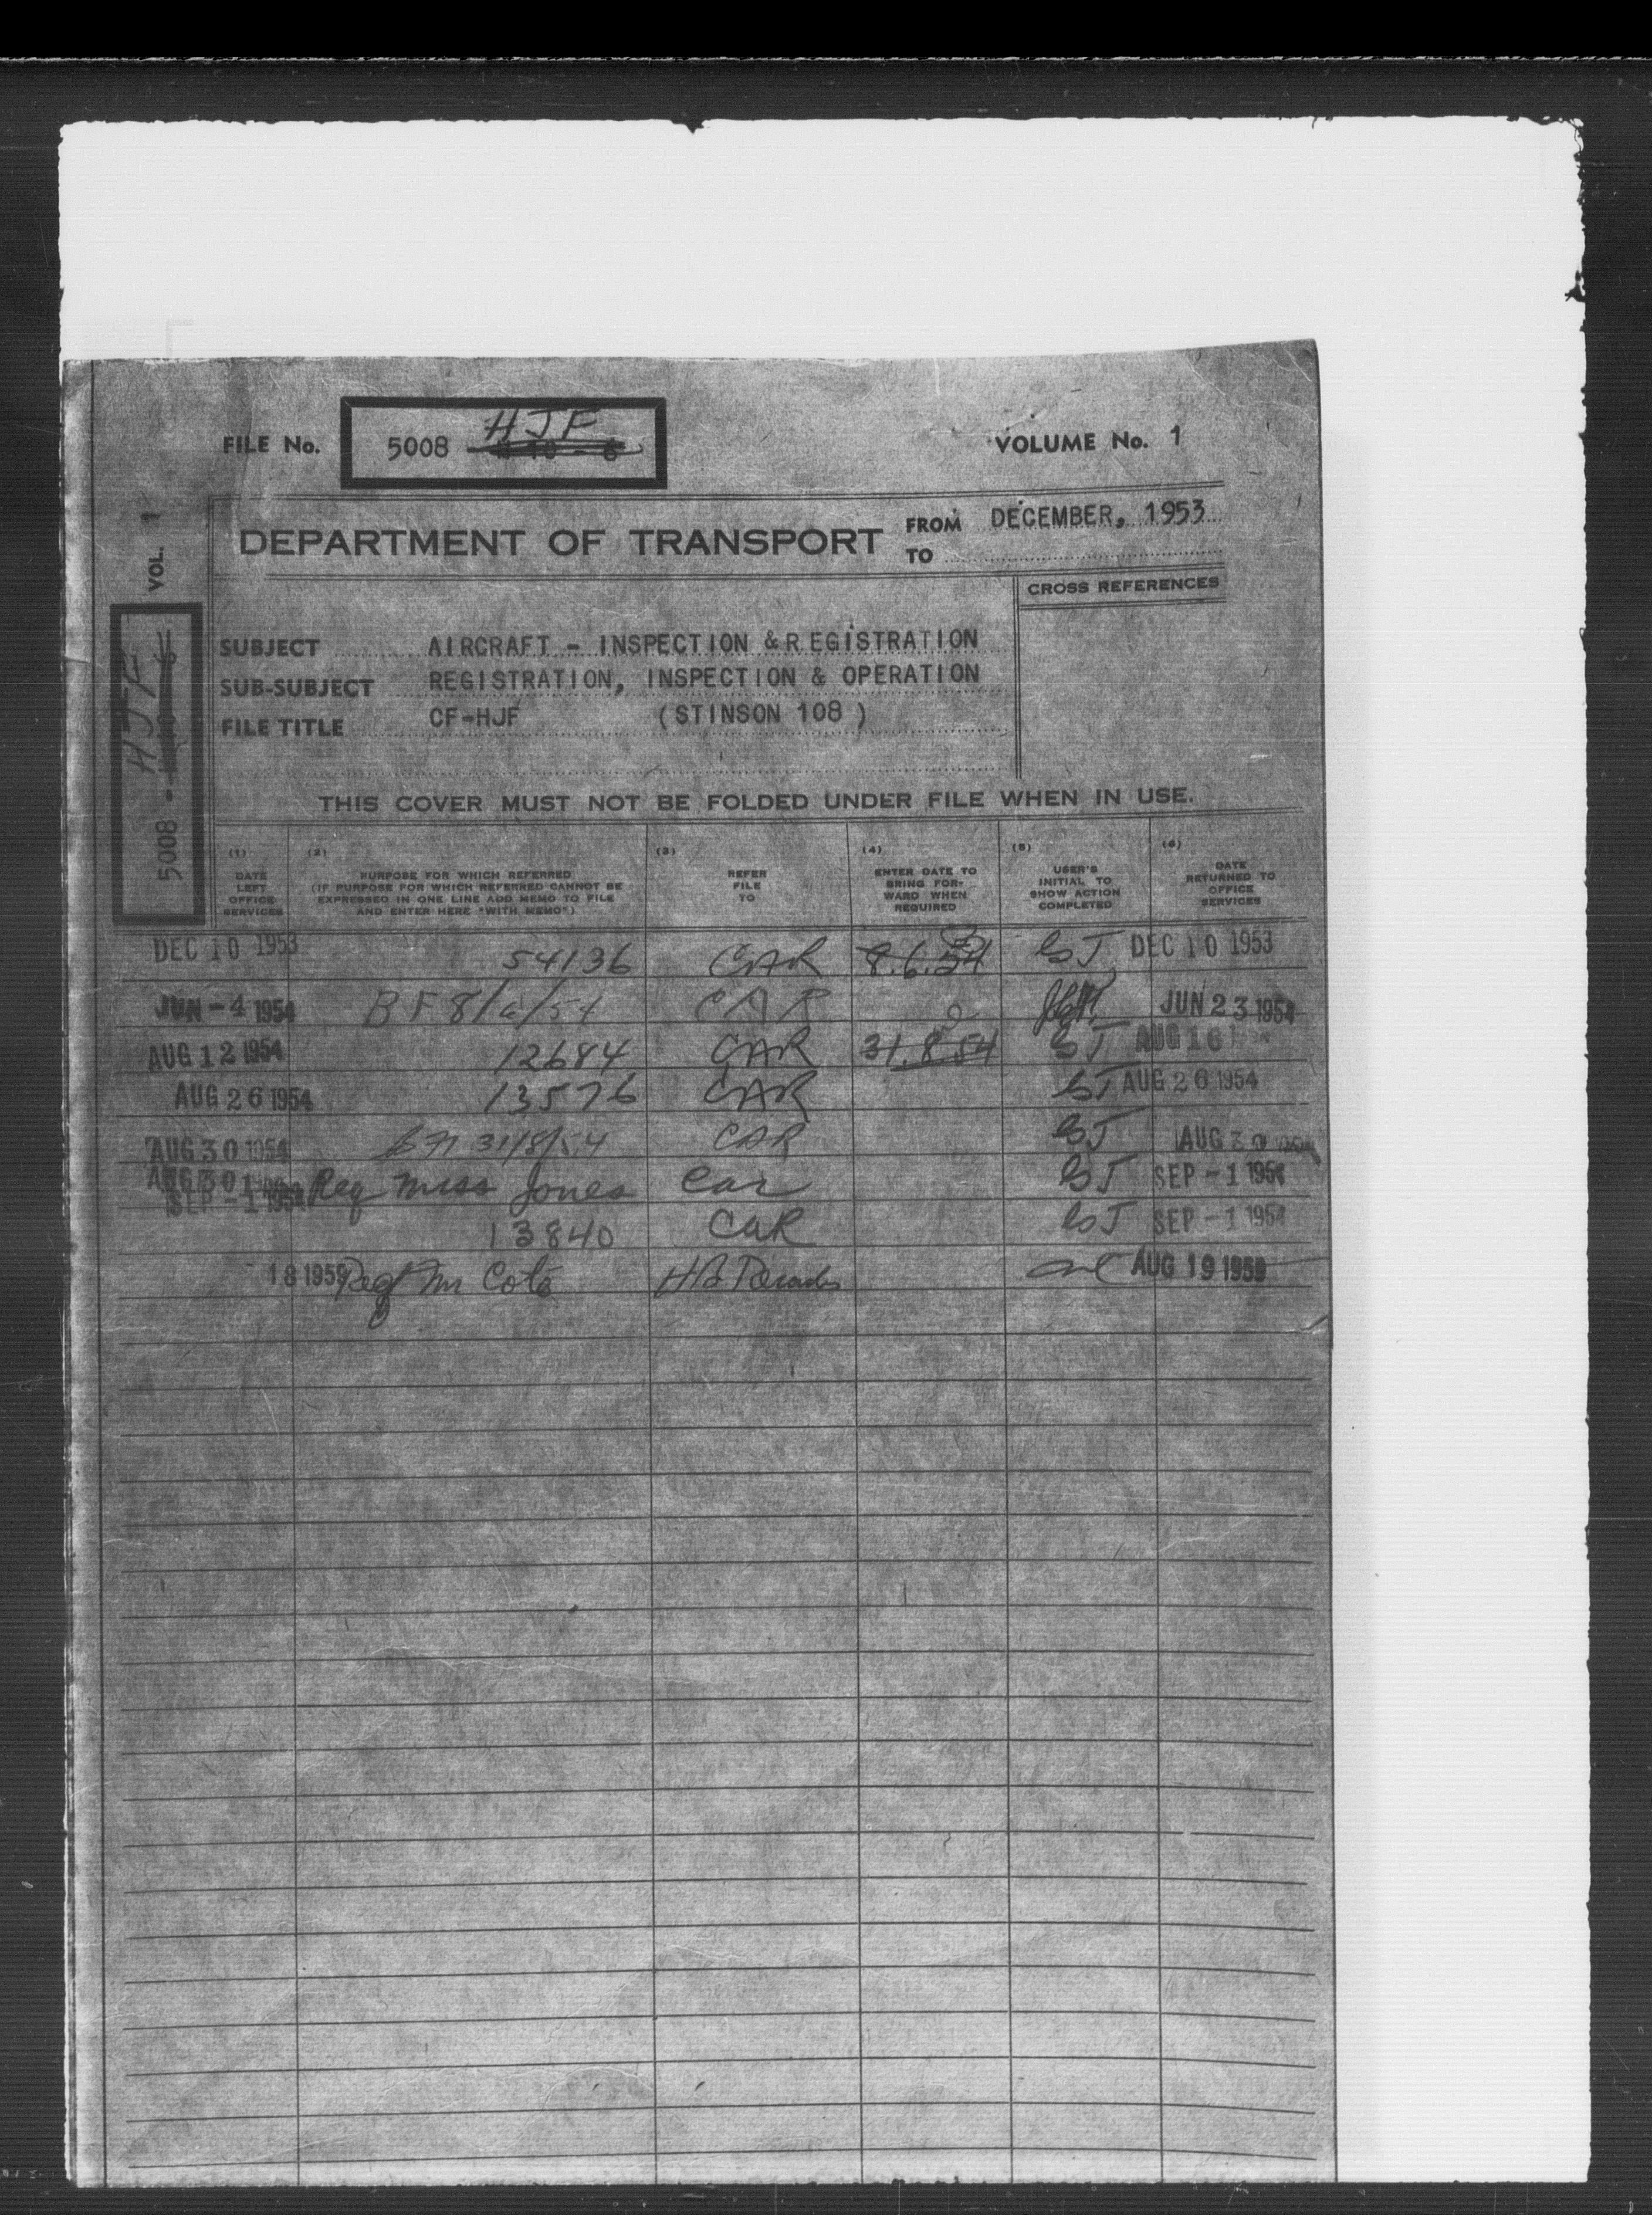 FILE No. 5008 HJF
VOLUME No. 1
DEPARTMENT OF TRANSPORT
FROM DECEMBER, 1953
TO
CROSS REFERENCES
VOL. 1
5008 - HJF
SUBJECT AIRCRAFT - INSPECTION & REGISTRATION
SUB-SUBJECT REGISTRATION, INSPECTION & OPERATION
FILE TITLE CF-HJF (STINSON 108)
THIS COVER MUST NOT BE FOLDED UNDER FILE WHEN IN USE.
(1) DATE LEFT OFFICE SERVICES
(2) PURPOSE FOR WHICH REFERRED (IF PURPOSE FOR WHICH REFERRED CANNOT BE EXPRESSED IN ONE LINE ADD MEMO TO FILE AND ENTER HERE "WITH MEMO")
(3) REFER FILE TO
(4) ENTER DATE TO BRING FORWARD WHEN REQUIRED
(5) USER'S INITIAL TO SHOW ACTION COMPLETED
(6) DATE RETURNED TO OFFICE SERVICES
DEC 10 1953 54136 CAR 8.6.54 DEC 10 1953
JUN -4 1954 BF 8/6/54 CAR JUN 23 1954
AUG 12 1954 12684 CAR 31.8.54 AUG 16
AUG 26 1954 13576 CAR AUG 26 1954
AUG 30 1954 31/8/54 CAR AUG 30 1954
AUG 30 SEP -1 1954 Req Miss Jones Car SEP -1 1954
13840 CAR SEP -1 1954
18 1959 Req Mr Coté AUG 19 1959